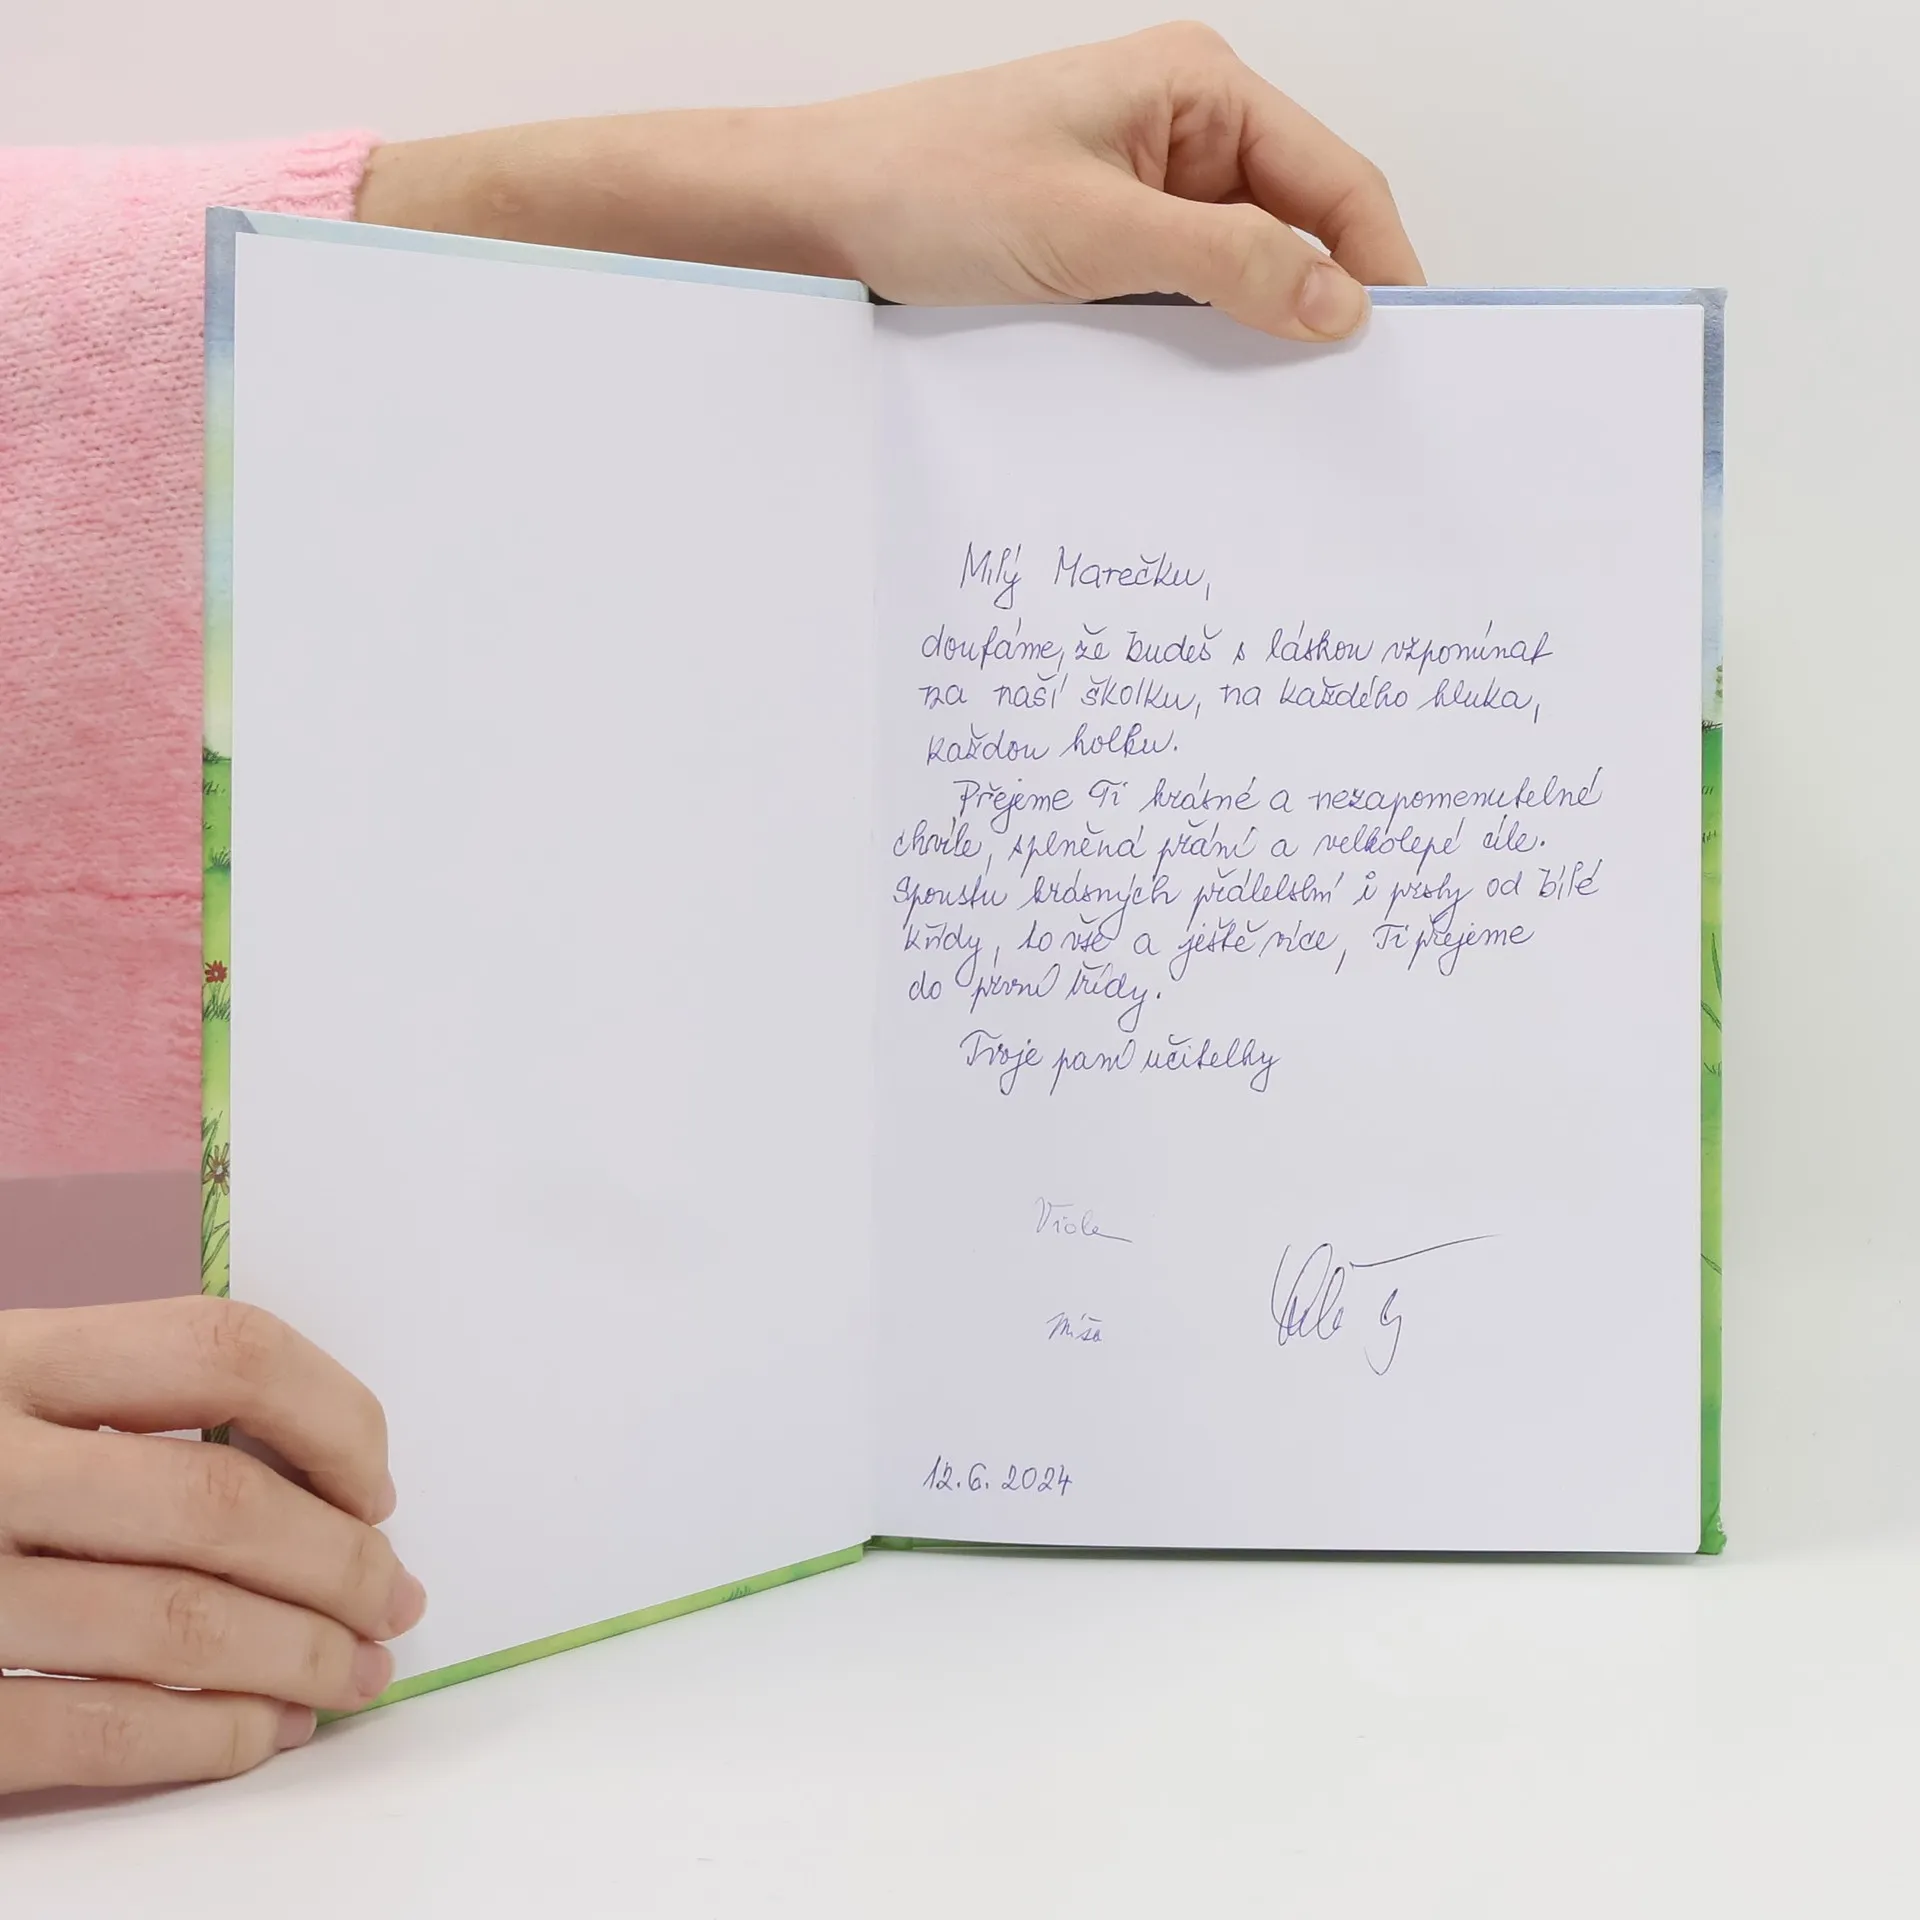 Milý Marečku,
doufáme, že budeš s láskou vzpomínat
na naší školku, na každého kluka,
každou holku.
Přejeme Ti krásné a nezapomenutelné
chvíle, splněná přání a velkolepé cíle.
Spoustu krásných přátelství i prsty od bílé
křídy, to vše a ještě více, Ti přejeme
do první třídy.
Tvoje paní učitelky
Viola
Míša
12.6.2024